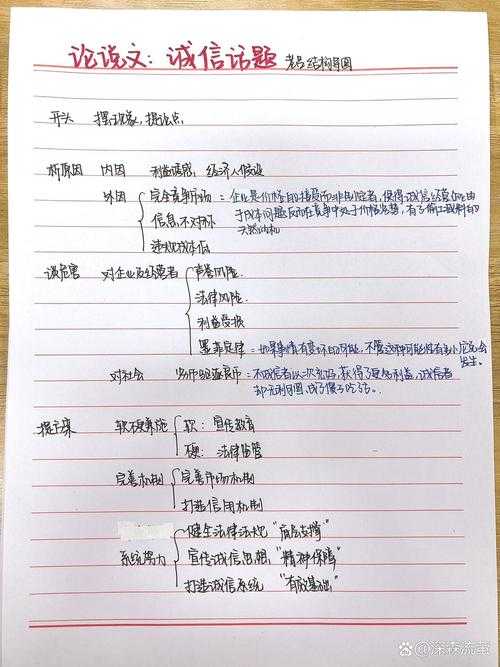 论说文：诚信话题 老吕结构导图
开头 摆现象，提论点
析原因 内因 利益诱惑，经济人假设
外因 完全竞争市场：企业是价格的接受而非制定者，使得诚信经营的企业由
于成本问题反而在竞争中处于价格劣势，有了偷工减料的
天然动机
信息不对称
违规成本低
谈危害 对企业及经营者 声誉风险
法律风险
利益受损
墨菲定律：如果事情有变坏的可能，不管这种可能性有多小，它总会
发生。
对社会 劣币驱逐良币：不诚信者以次充好，获得了短期利益，诚信者
却无利可图，成了傻子吃亏。
提方案 软硬兼施 软：宣传教育
硬：法律监管
完善机制 完善市场机制
打造信用机制
系统努力 健全法律法规“底层支撑”
宣传诚信思想“精神保障”
打造诚信系统“有效基础”
@深秋流萤